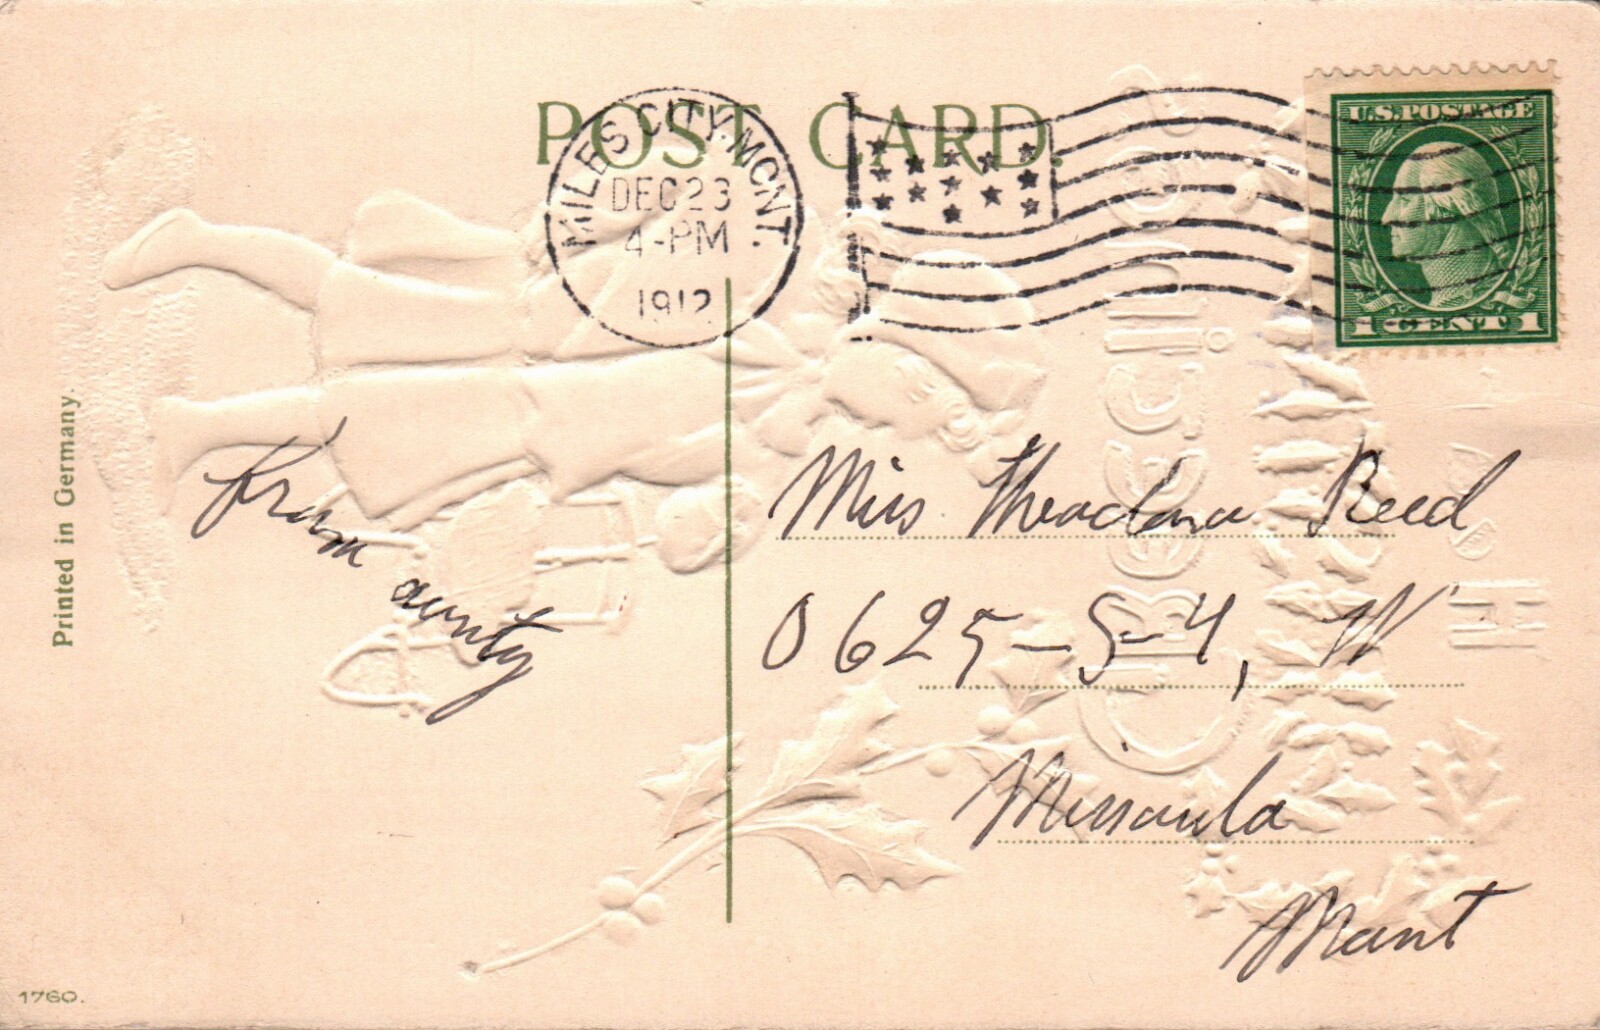 POST CARD.
MILES CITY, MONT.
DEC 23
4-PM
1912
U.S. POSTAGE
1 CENT 1
Printed in Germany.
from
aunty
Miss Theadora Reed
0625-S-4, W
Missoula
Mont
1760.